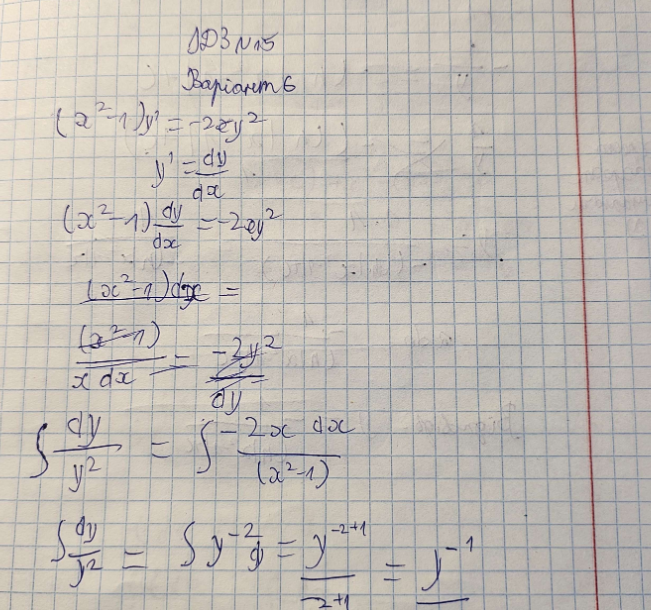 ІДЗ №15
Варіант 6
(x²-1)y' = -2xy²
y' = dy/dx
(x²-1) dy/dx = -2xy²
(x²-1)dx =
(x²-1)/(x dx) = -2y²/dy
∫ dy/y² = ∫ -2x dx/(x²-1)
∫ dy/y² = ∫ y⁻² dy = y⁻²⁺¹/(-2+1) = y⁻¹